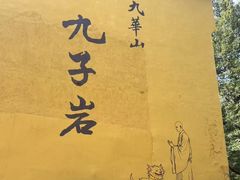 九華山
九子岩